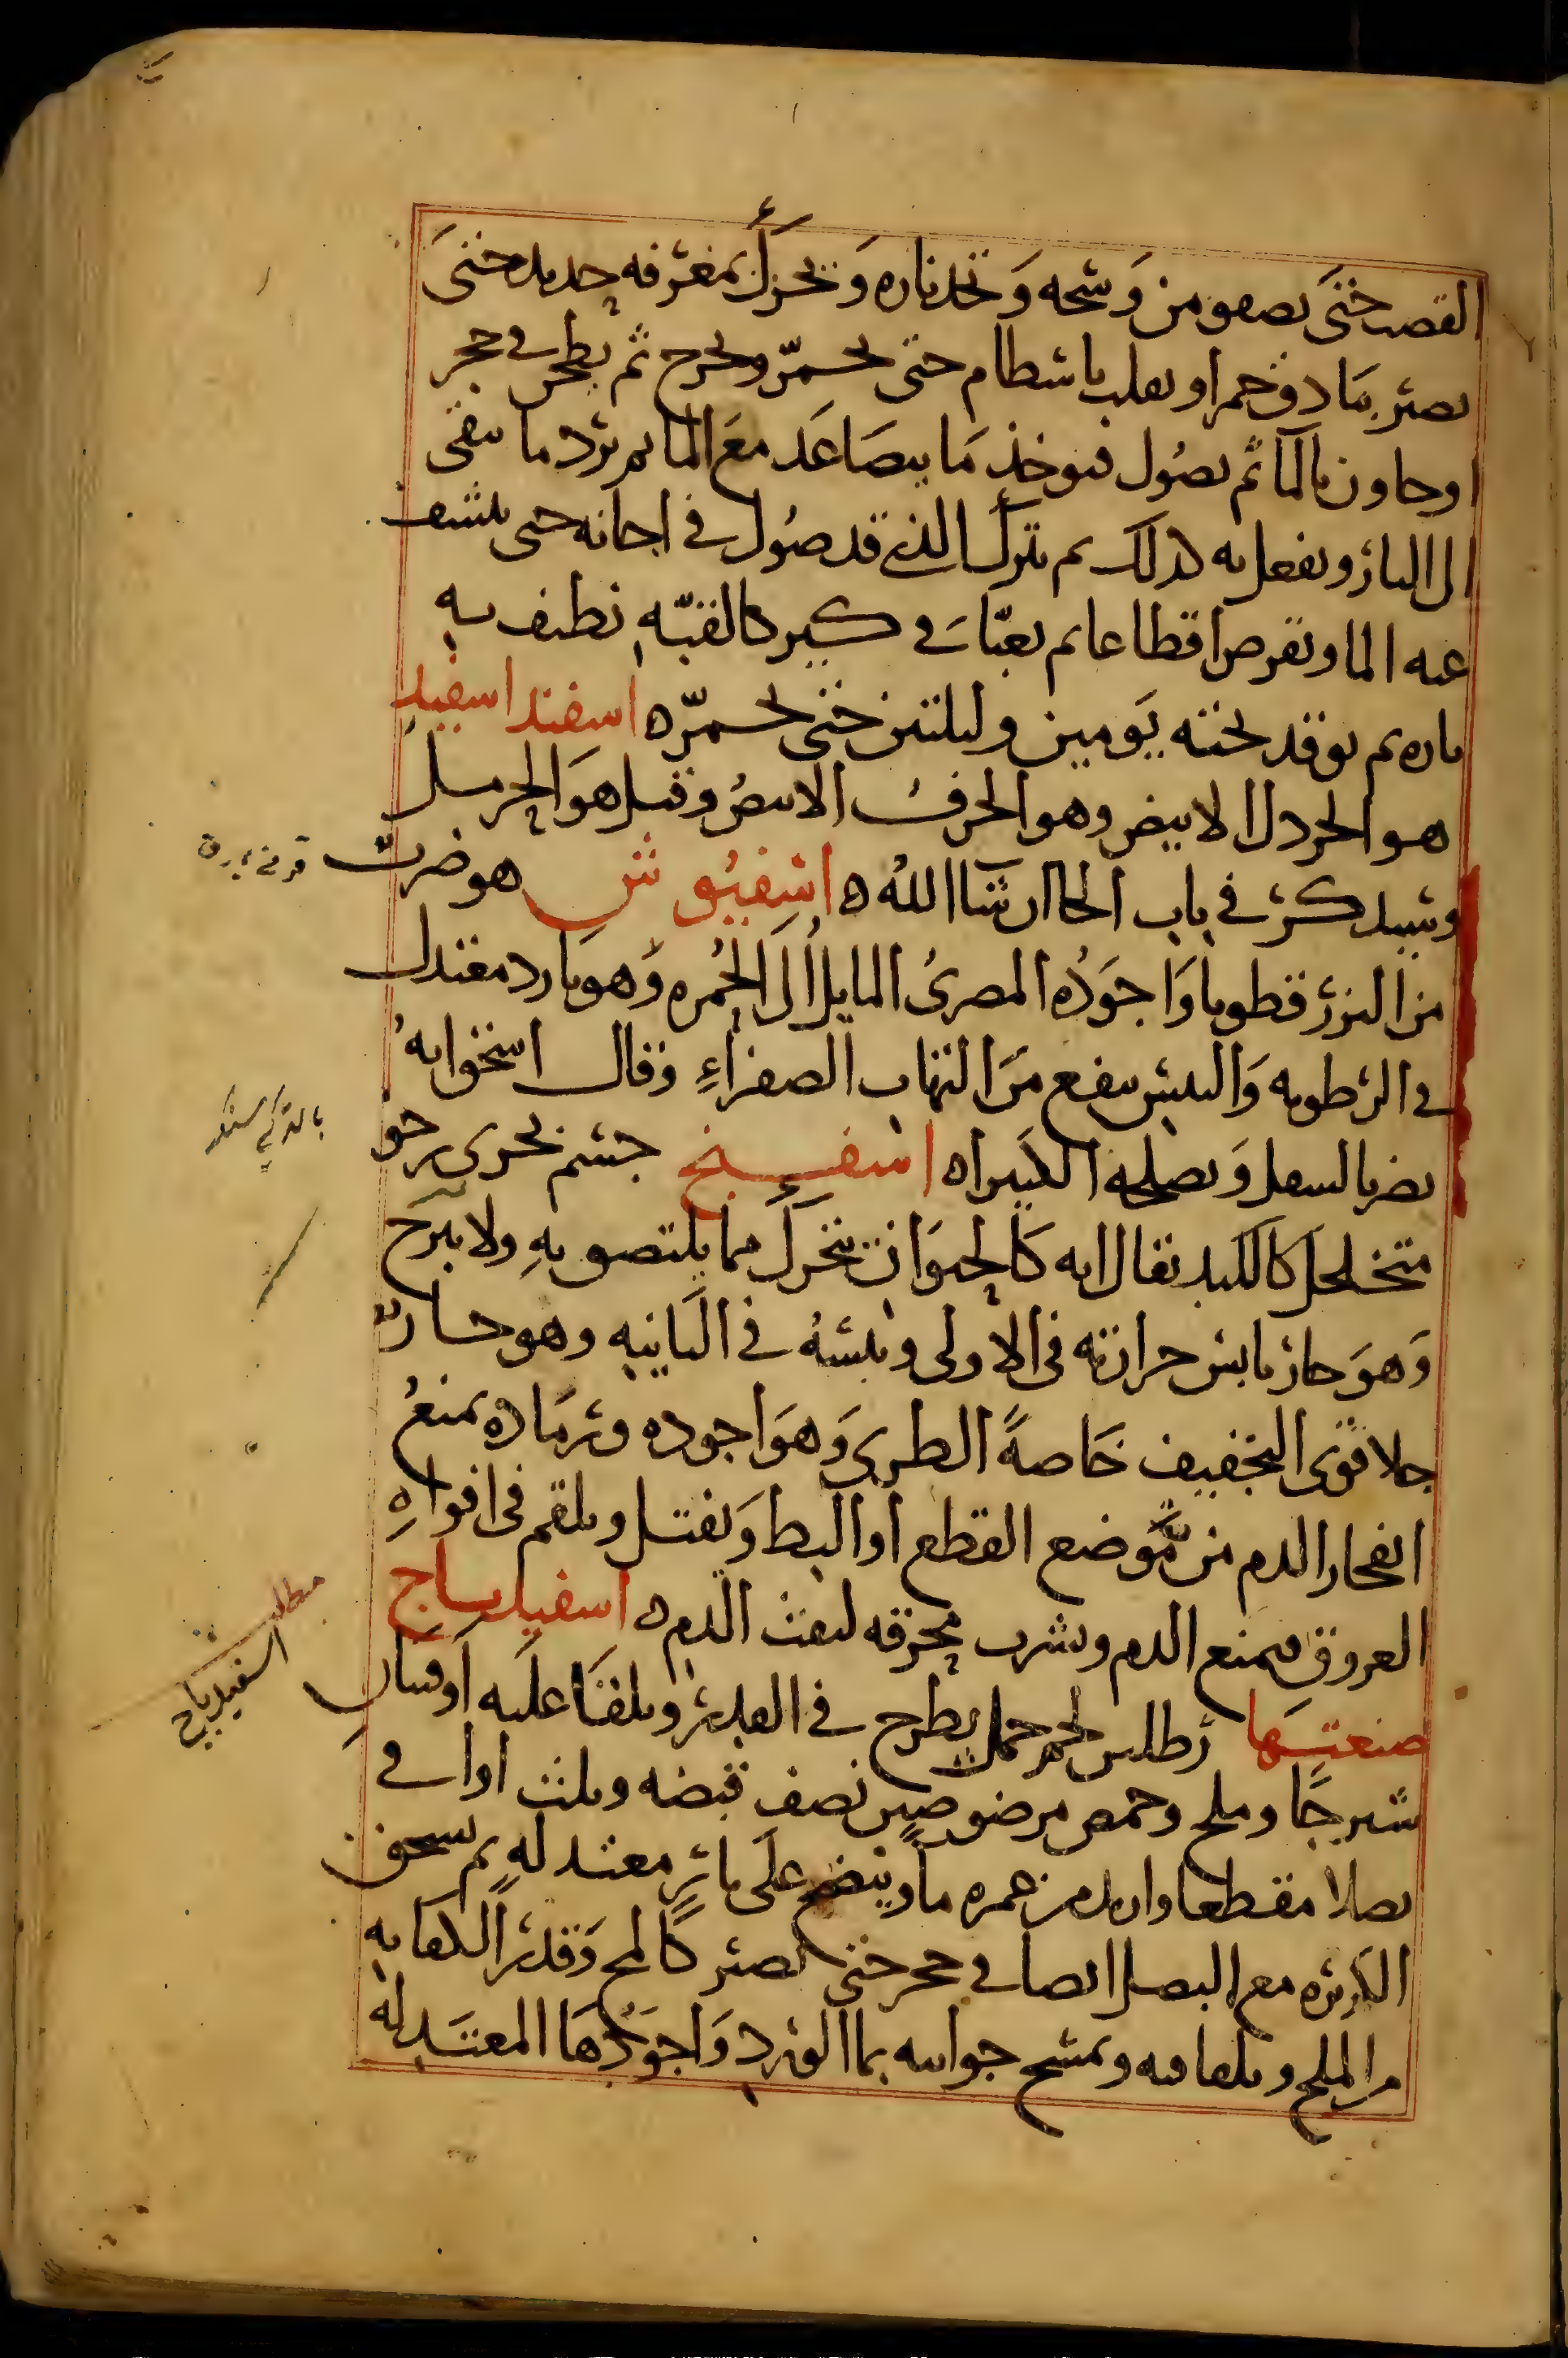 القصب حتى يصفو من وسخه وتخد ناره ويحرك بمغرفه حديد حتى
يصير رمادا وخمرا ويقلب باسطام حتى يحمر ويخرج ثم يطحن في حجر
او هاون بالما ثم يصول فيوخذ ما يتصاعد مع الما ثم يرد ما يبقى
الى النار ويفعل به كذلك ثم يترك الذي قد صول في اجانه حتى ينشف
عنه الما ويقرص اقطاعا ثم يعبا في كبير كالقبه نطيف به
ناره ثم يوقد تحته يومين وليلتين حتى يحمر ه اسفند اسفيد
هو الخردل الابيض وهو الحرف الابيض وقيل هو الحرمل
وسيذكر في باب الحا ان شا الله ه اسفيوش هو ضرب
من البزر قطونا واجوده المصرى المايل الى الحمره وهو بارد معتدل
في الرطوبه واليبس ينفع من التهاب الصفراء وقال اسخق انه
يضر بالسعل ويصلحه الكثيرا ه اسفنج جسم بحرى رخو
متخلخل كاللبد يقال انه كالحيوان يتحرك مما يلتصق به ولا يبرح
وهو حار يابس حرارته في الاولى ويبسه في الثانيه وهو حار
جلا قوى التجفيف خاصة الطرى وهو اجوده ورماده يمنع
انفجار الدم من موضع القطع او البط ويفتل ويلقم في افواه
العروق فيمنع الدم ويشرب محرقه لنفث الدم ه اسفيدباج
صنعتها رطلين لحم حمل يطرح في القدر ويلقا عليه اوقيتان
شيرجا وملح وحمص مرضوض نصف قبضه وثلث اواقي
بصلا مقطعا وان يلدم غمره ما وينضج على نار معتدله ثم يسحق
الكزبره مع البصل ايضا في حجر حتى يصير كالمخ وقدر الكفايه
من الملح ويلقا فيه ويمسح جوانبه بما الورد واجودها المعتدله
قرني ياروق
بالتركي سنكر
مطلب
اسفيدباج